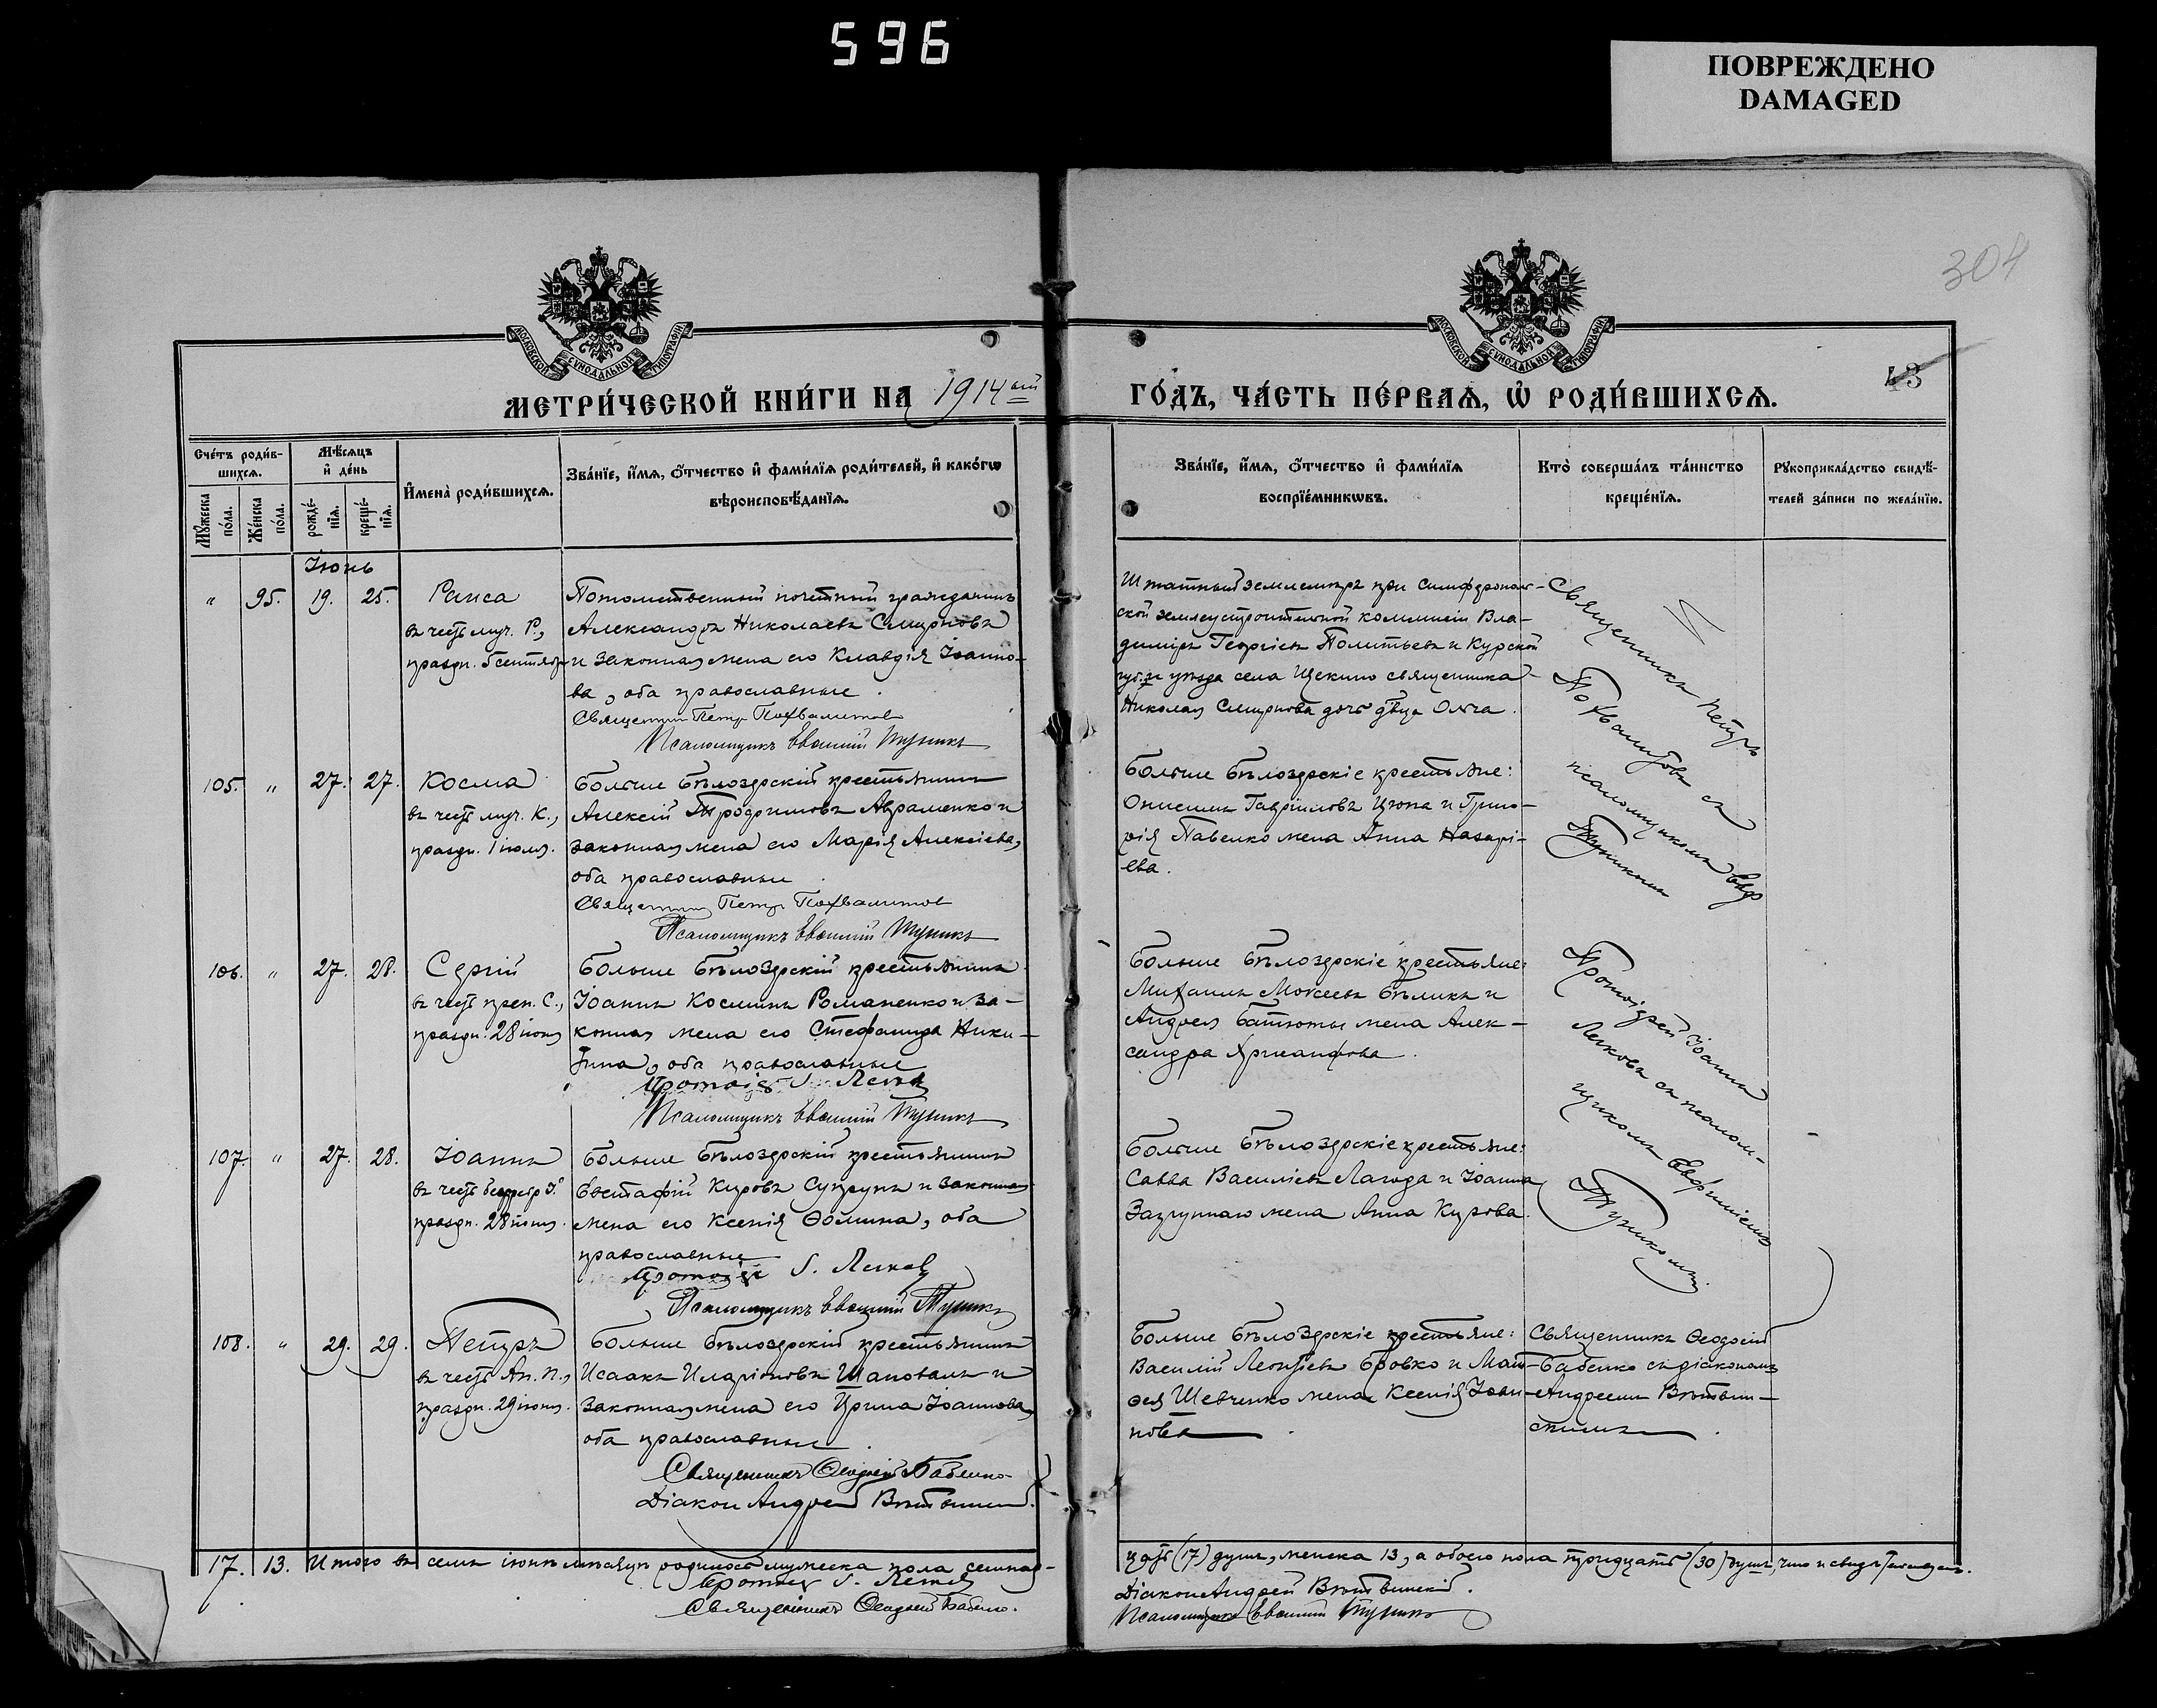 596
ПОВРЕЖДЕНО
DAMAGED
304
МОСКОВСКОЙ СѴНОДАЛЬНОЙ ТИПОГРАФІИ
МОСКОВСКОЙ СѴНОДАЛЬНОЙ ТИПОГРАФІИ
43
МЕТРИ́ЧЕСКОЙ КНИ́ГИ НА 1914ый
ГО́ДЪ, ЧА́СТЬ ПЕ́РВАѦ, Ѡ҆ РОДИ́ВШИХСѦ.
Сче́тъ роди́в-
шихсѧ.
Мѣ́сѧцъ
и҆ де́нь
Мꙋ́жеска
по́ла.
Же́нска
по́ла.
рожде́-
нїѧ.
креще́-
нїѧ.
И҆мена̀ роди́вшихсѧ.
Зва́нїе, и҆́мѧ, ѻ҆́тчество и҆ фами́лїѧ роди́телей, и҆ како́гѡ
вѣроисповѣ́данїѧ.
Зва́нїе, и҆́мѧ, ѻ҆́тчество и҆ фами́лїѧ
воспрїе́мникѡвъ.
Кто̀ соверша́лъ та́инство
креще́нїѧ.
Рꙋкоприкла́дство свидѣ́-
телей за́писи по жела́нїю.
Іюнь
" 95. 19. 25. Раиса
въ честь муч. Р.,
праздн. 5 сентяб.
Потомственный почетный гражданинъ
Александръ Николаевъ Смирновъ
и законная жена его Клавдія Іоанно-
ва, оба православные.
Священник Петр Похвалитов
Псаломщикъ Евѳимій Тупикъ
Штатный землемѣръ при Симферополь-
ской землеустроительной коммисіи Вла-
диміръ Георгіевъ Политьевъ и Курской
губ. и уѣзда села Щекино священника
Николая Смирнова дочь дѣвица Ольга.
Священникъ Петръ
Похвалитовъ съ
псаломщикомъ Евф.
Тупикомъ
105. " 27. 27. Косма
въ честь муч. К.,
праздн. 1 іюля.
Больше Бѣлозерскій крестьянинъ
Алексій Трофимовъ Авраменко и
законная жена его Марія Алексіева,
оба православные
Священник Петр Похвалитов
Псаломщикъ Евѳимій Тупикъ
Больше Бѣлозерскіе крестьяне:
Онисимъ Гавріиловъ Цюпа и Григо-
рія Павелко жена Анна Назарі-
ева.
106. " 27. 28. Сергій
въ честь преп. С.,
праздн. 28 іюня
Больше Бѣлозерскій крестьянинъ
Іоаннъ Косминъ Романенко и за-
конная жена его Стефанида Ники-
тина, оба православные
Протоіер І. Легков
Псаломщикъ Евѳимій Тупикъ
Больше Бѣлозерскіе крестьяне:
Михаилъ Мокеевъ Бѣликъ и
Андрея Батюты жена Алек-
сандра
Протоіерей Іоаннъ
Легковъ съ псалом-
щикомъ Евфиміемъ
Тупикомъ.
107. " 27. 28. Іоаннъ
въ честь безсребр. І.
праздн. 28 іюня.
Больше Бѣлозерскій крестьянинъ
Евстафій Кировъ Супрунъ и законная
жена его Ксенія Ѳомина, оба
православные
Протоіер І. Легков
Псаломщикъ Евѳимій Тупикъ
Больше Бѣлозерскіе крестьяне:
Савва Василіевъ Лагода и Іоанна
жена Анна Кирова.
108. " 29. 29. Петръ
въ честь Ап. П.,
праздн. 29 іюня.
Больше Бѣлозерскій крестьянинъ
Исаакъ Иларіоновъ Шаповалъ и
законная жена его Ирина Іоаннова,
оба православные.
Священникъ Ѳеодосій Бабенко
Діакон Андрей Вѣтвинскій.
Больше Бѣлозерскіе крестьяне:
Василій Леонтіевъ Бровко и Мат-
ѳея Шевченко жена Ксенія Іоан-
нова.
Священникъ Ѳеодосій
Бабенко съ діакономъ
Андреемъ Вѣтвин-
скимъ.
17. 13. Итого въ семъ іюнѣ мѣсяцѣ родилось мужеска пола семнад-
цать (17) душъ, женска 13, а обоего пола тридцать (30) душъ, что и свидѣтельствуемъ.
Протоіер І. Легков
Священникъ Ѳеодосій Бабенко.
Діакон Андрей Вѣтвинскій.
Псаломщикъ Евѳимій Тупикъ